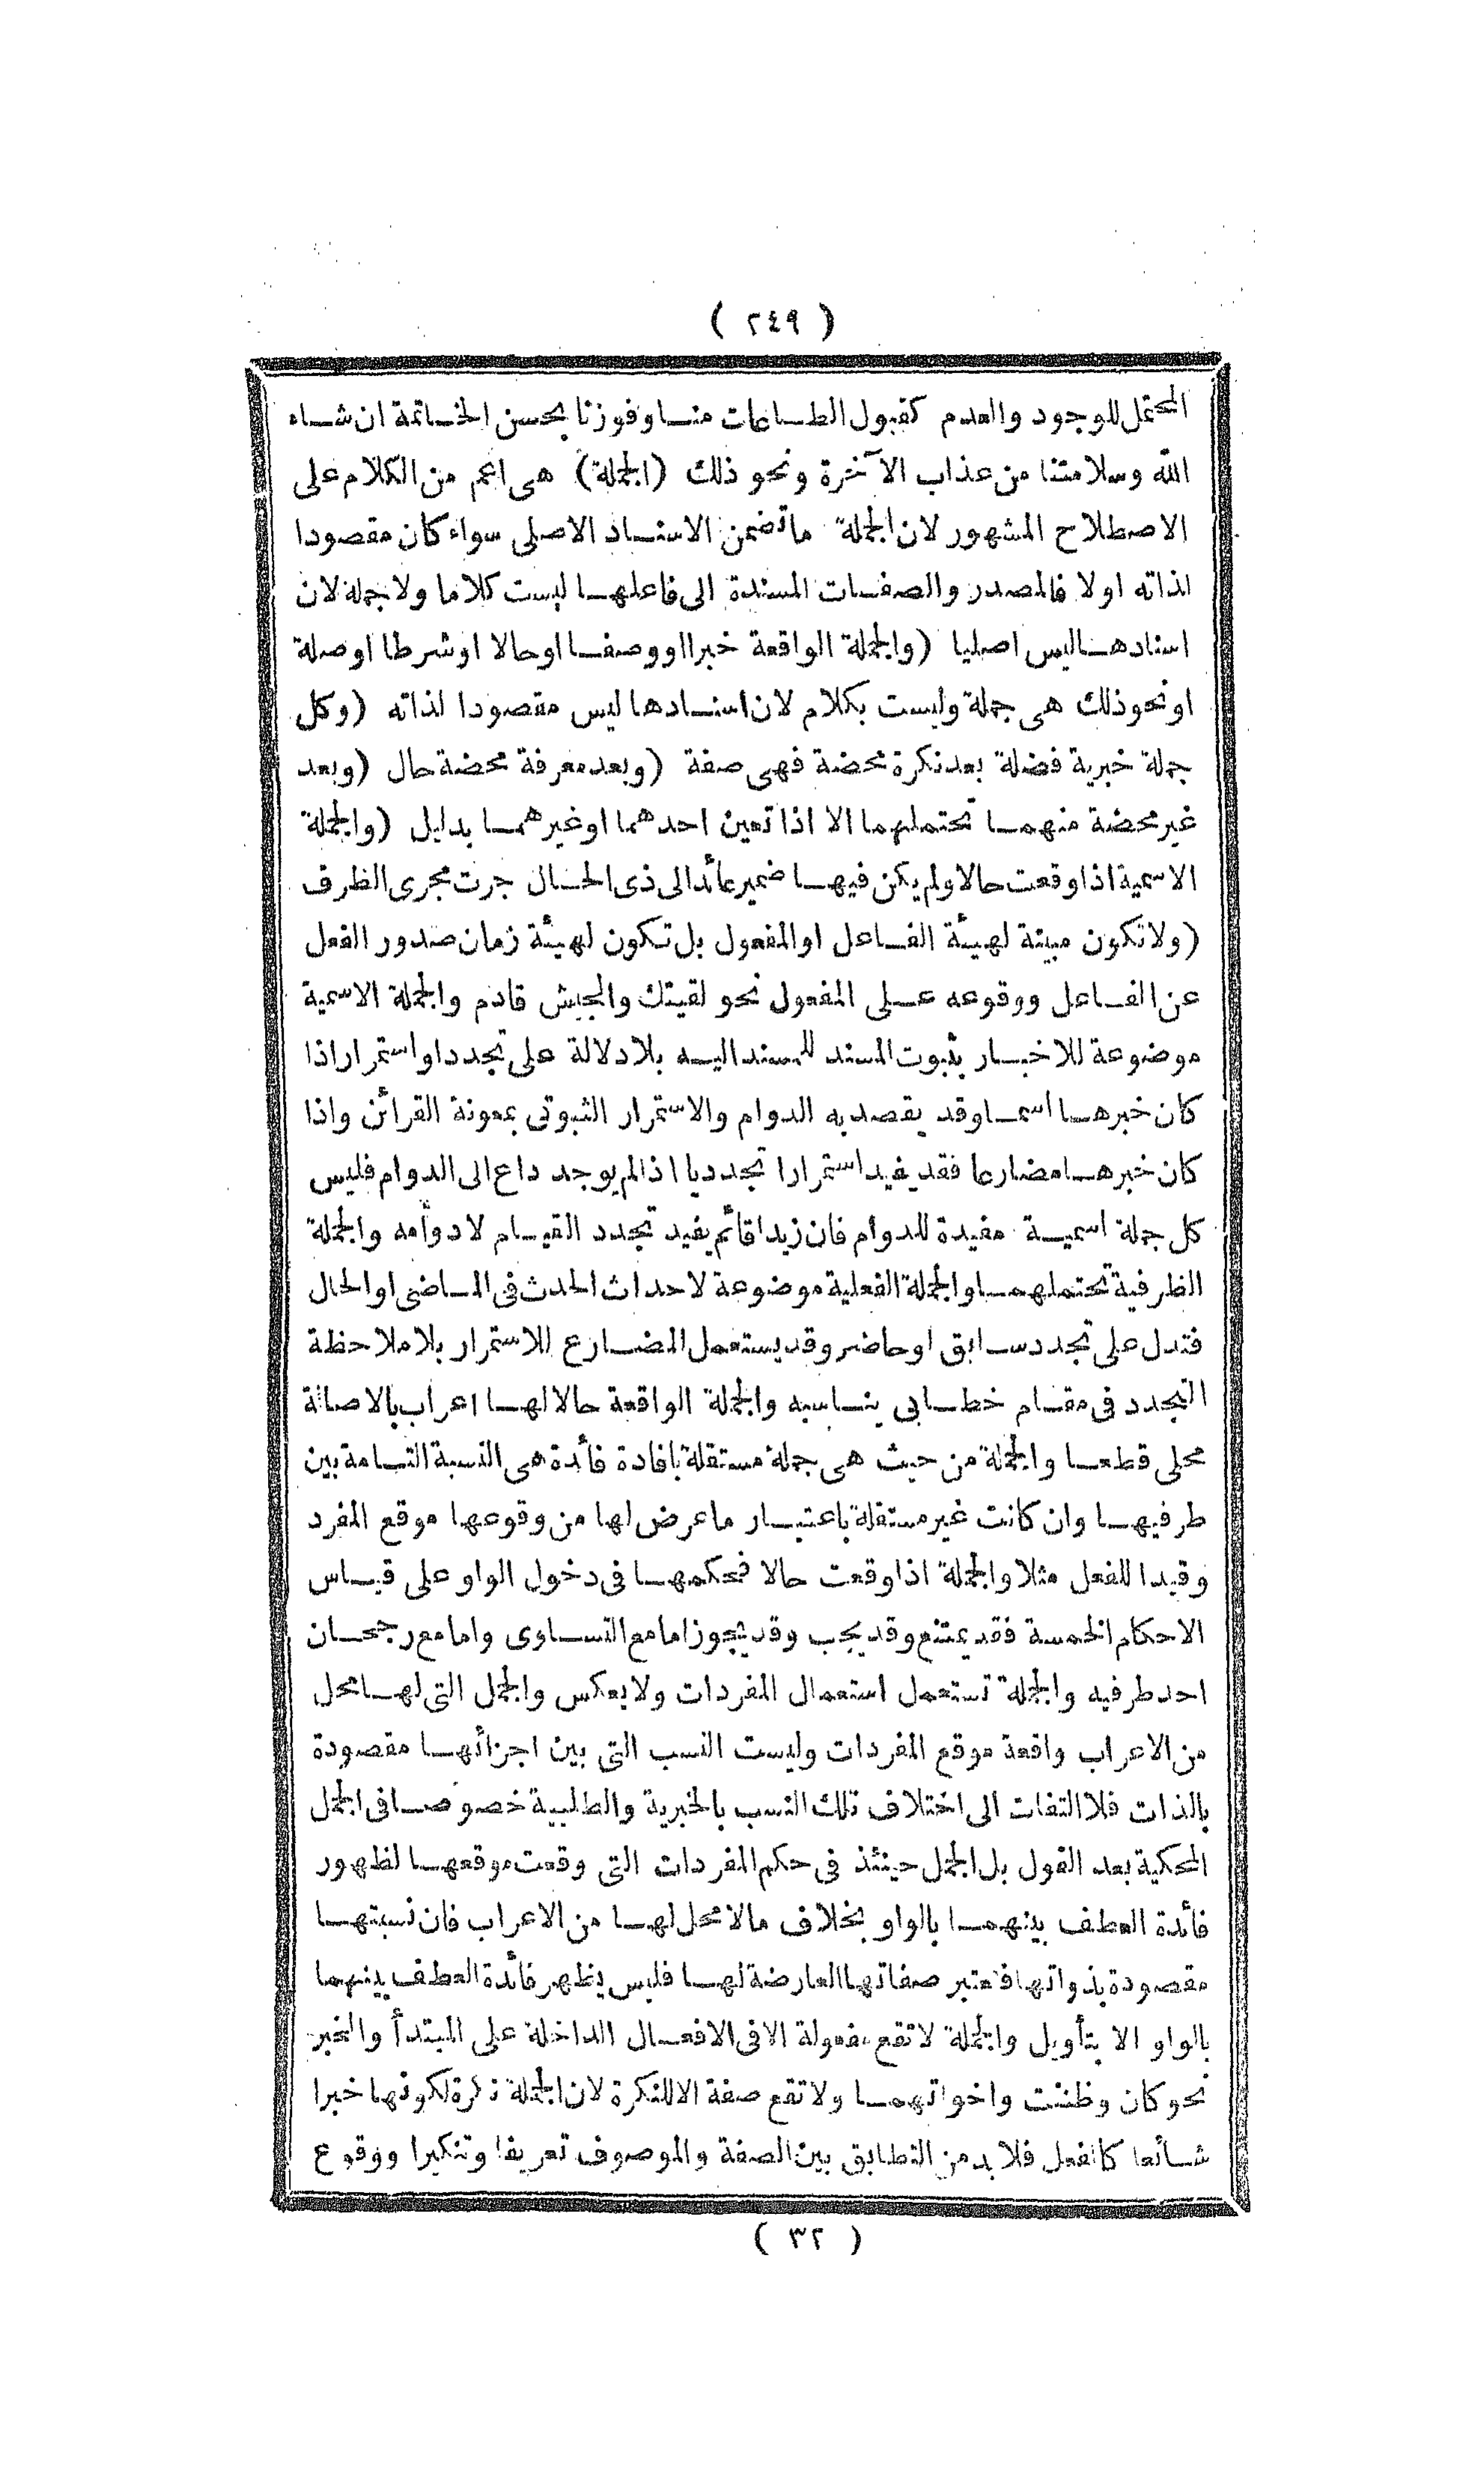 ( ٢٤٩ )
المحتمل للوجود والعدم كقبول الطاعات منا وفوزنا بحسن الخاتمة ان شاء
الله وسلامتنا من عذاب الآخرة ونحو ذلك (الجملة) هى اعم من الكلام على
الاصطلاح المشهور لان الجملة ما تضمن الاسناد الاصلى سواء كان مقصودا
لذاته او لا فالمصدر والصفات المسندة الى فاعلها ليست كلاما ولا جملة لان
اسنادها ليس اصليا (والجملة الواقعة خبرا او وصفا او حالا او شرطا او صلة
او نحو ذلك هى جملة وليست بكلام لان اسنادها ليس مقصودا لذاته (وكل
جملة خبرية فضلة بعد نكرة محضة فهى صفة (وبعد معرفة محضة حال (وبعد
غير محضة منهما تحتملهما الا اذا تعين احدهما او غيرهما بدليل (والجملة
الاسمية اذا وقعت حالا ولم يكن فيها ضمير عائد الى ذى الحال جرت مجرى الظرف
(ولا تكون مبينة لهيئة الفاعل او المفعول بل تكون لهيئة زمان صدور الفعل
عن الفاعل ووقوعه على المفعول نحو لقيتك والجيش قادم والجملة الاسمية
موضوعة للاخبار بثبوت المسند للمسند اليه بلا دلالة على تجدد او استمرار اذا
كان خبرها اسما وقد يقصد به الدوام والاستمرار الثبوتى بمعونة القرائن واذا
كان خبرها مضارعا فقد يفيد استمرارا تجدديا اذا لم يوجد داع الى الدوام فليس
كل جملة اسمية مفيدة للدوام فان زيدا قائم يفيد تجدد القيام لا دوامه والجملة
الظرفية تحتملهما والجملة الفعلية موضوعة لاحداث الحدث فى الماضى او الحال
فتدل على تجدد سابق او حاضر وقد يستعمل المضارع للاستمرار بلا ملاحظة
التجدد فى مقام خطابى يناسبه والجملة الواقعة حالا لها اعراب بالاصالة
محلى قطعا والجملة من حيث هى جملة مستقلة بافادة فائدة هى النسبة التامة بين
طرفيها وان كانت غير مستقلة باعتبار ما عرض لها من وقوعها موقع المفرد
وقيدا للفعل مثلا والجملة اذا وقعت حالا فحكمها فى دخول الواو على قياس
الاحكام الخمسة فقد يمتنع وقد يجب وقد يجوز اما مع التساوى واما مع رجحان
احد طرفيه والجملة تستعمل استعمال المفردات ولا يعكس والجمل التى لها محل
من الاعراب واقعة موقع المفردات وليست النسب التى بين اجزائها مقصودة
بالذات فلا التفات الى اختلاف تلك النسب بالخبرية والطلبية خصوصا فى الجمل
المحكية بعد القول بل الجمل حينئذ فى حكم المفردات التى وقعت موقعها لظهور
فائدة العطف بينهما بالواو بخلاف مالا محل لها من الاعراب فان نسبتها
مقصودة بذواتها فتعتبر صفاتها العارضة لها فليس يظهر فائدة العطف بينهما
بالواو الا بتأويل والجملة لا تقع مفعولة الا فى الافعال الداخلة على المبتدأ والخبر
نحو كان وظننت واخواتهما ولا تقع صفة الا للنكرة لان الجملة نكرة لكونها خبرا
شائعا كالفعل فلا بد من التطابق بين الصفة والموصوف تعريفا وتنكيرا ووقوع
( ٣٢ )